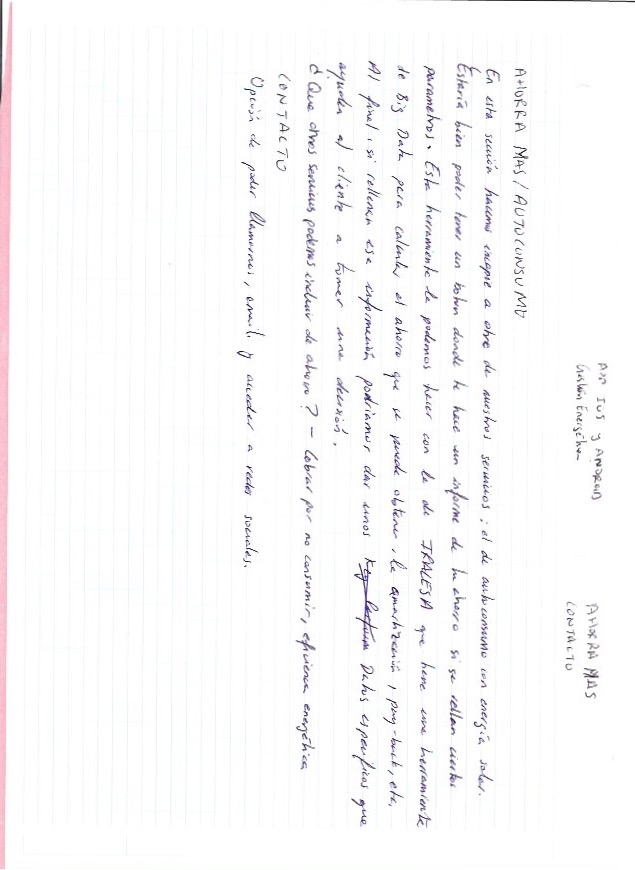 APP IOS y ANDROID
Gestión Energética
AHORRA MAS
CONTACTO
AHORRA MAS / AUTOCONSUMO
En esta sección hacemos incapie a otro de nuestros servicios: el de autoconsumo con energía solar.
Estaría bien poder tener un boton donde te hace un informe de tu ahorro si se rellan ciertos
parametros. Esta herramienta la podemos hacer con la de que tiene una herramienta
de Big Data para calcular el ahorro que se puede obtener, la amortización, pay-back, etc.
Al final, si rellenan esa información podríamos dar unos Datos especificos que
ayuden al cliente a tomar una decisión.
¿Que otros servicios podemos incluir de ahorro? - Cobrar por no consumir, eficiencia energética
CONTACTO
Opción de poder llamarnos, email y acceder a redes sociales.